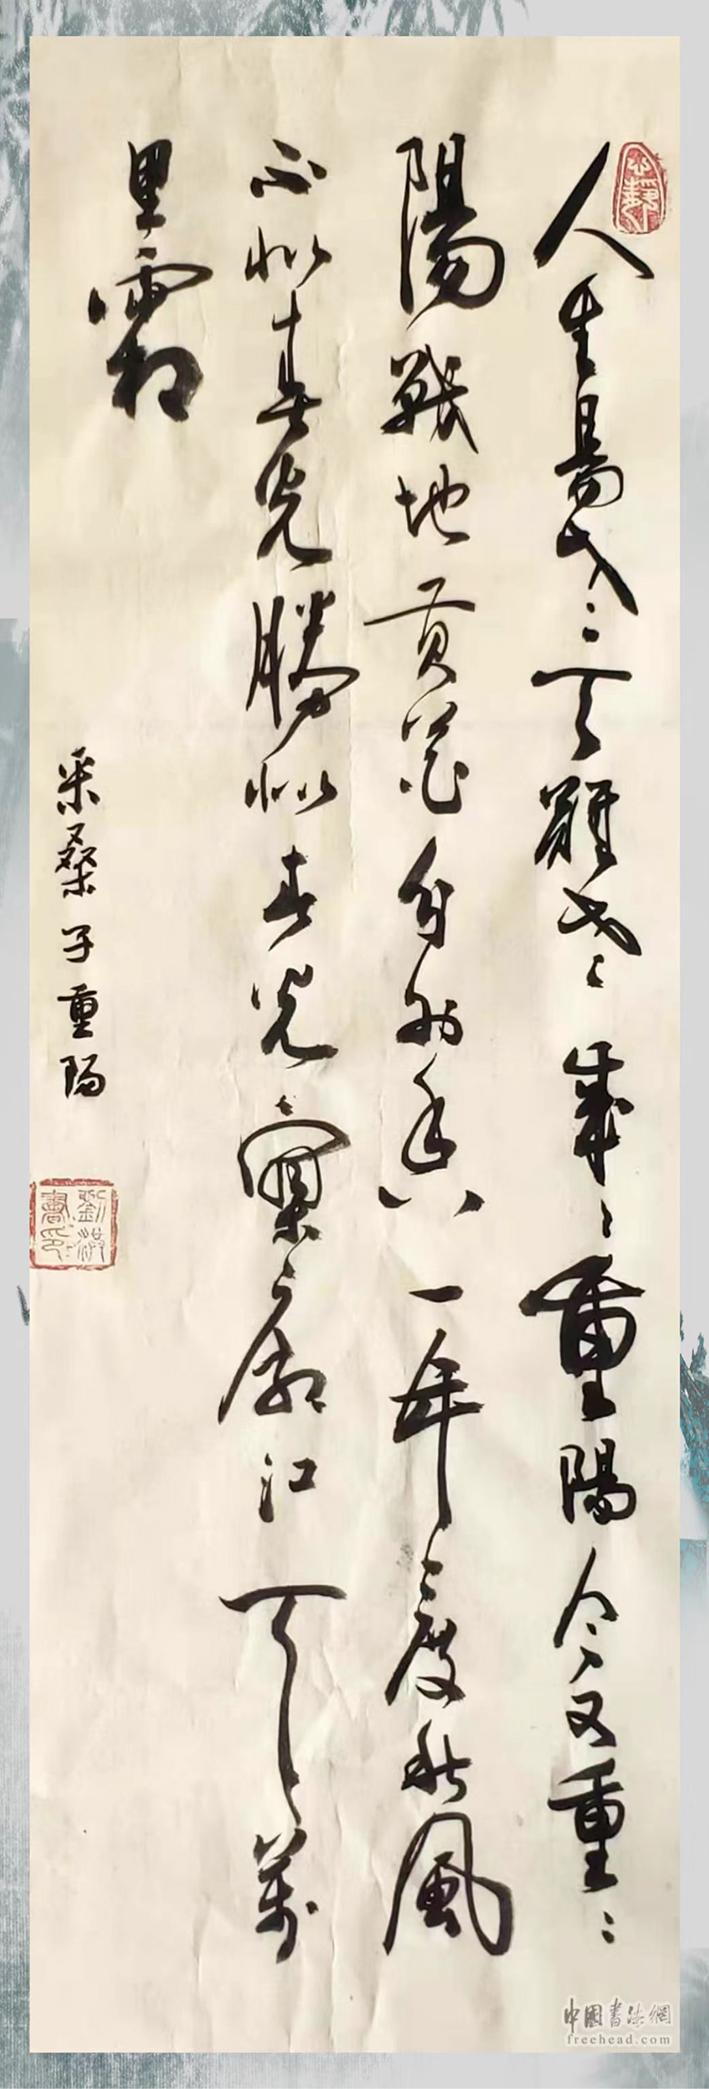 人生易老天難老歲々重陽今又重
陽戰地黃花分外香一年一度秋風
不似春光勝似春光寥廓江天萬
里霜
采桑子重陽
中國書法網
freehead.com